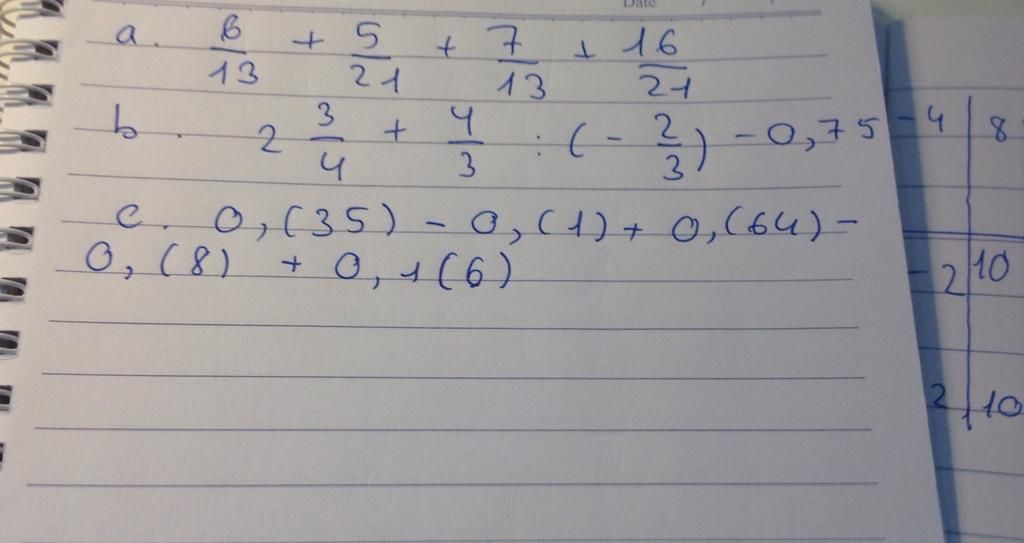 Date
a. 6/13 + 5/21 + 7/13 + 16/21
b. 2 3/4 + 4/3 : (- 2/3) - 0,75
c. 0,(35) - 0,(1) + 0,(64) -
0,(8) + 0,1(6)
-4 | 8
-2 | 10
2 | 10